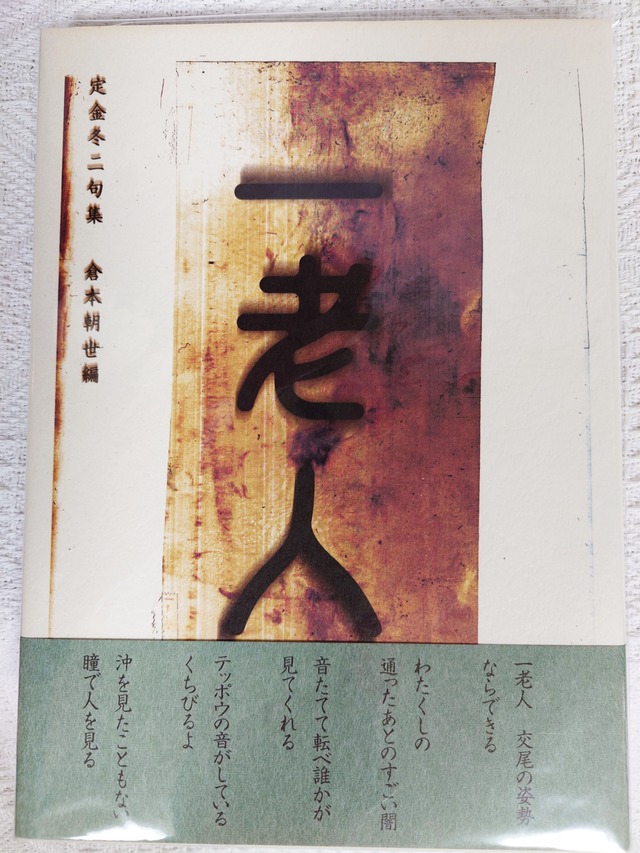 一老人
定金冬二句集　倉本朝世編
一老人　交尾の姿勢
ならできる
わたくしの
通ったあとのすごい闇
音たてて転べ誰かが
見てくれる
テッポウの音がしている
くちびるよ
沖を見たこともない
瞳で人を見る